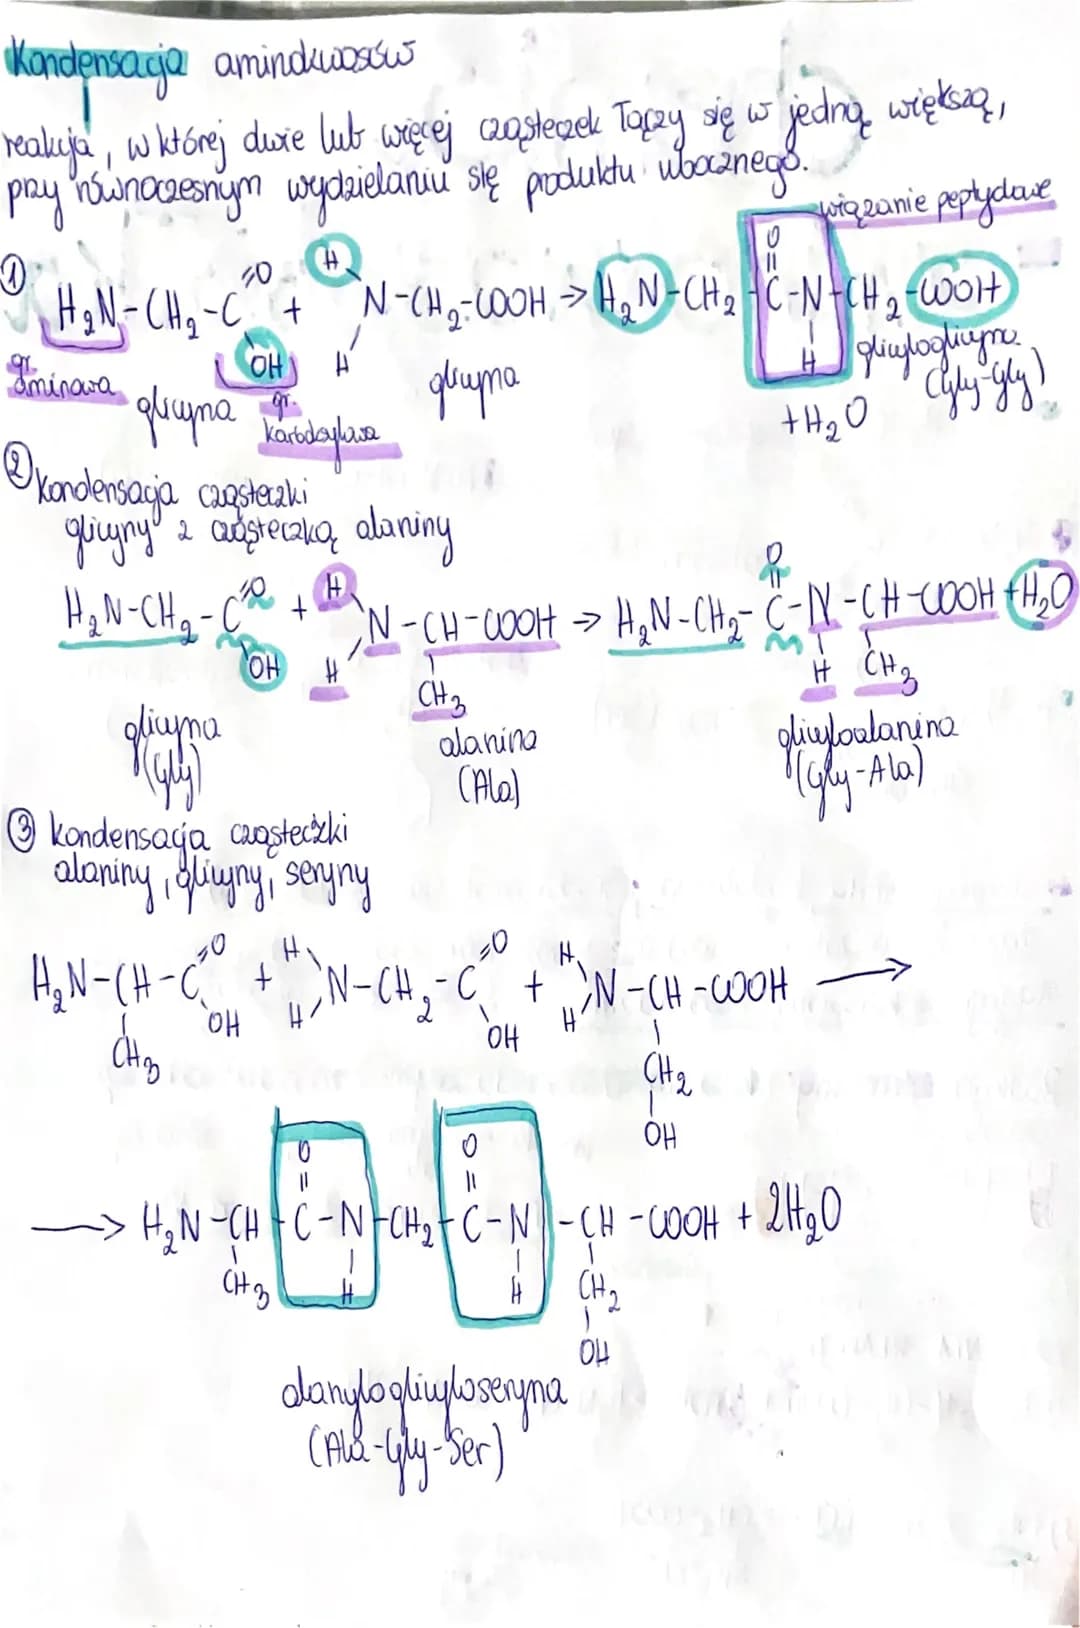 Kondensacja aminokwasów
reakcja, w której dwie lub więcej cząsteczek łączy się w jedną większą,
przy równoczesnym wydzielaniu się produktu ubocznego.
wiązanie peptydowe
① H₂N-CH₂-C(=O)-OH + H₂N-CH₂-COOH → H₂N-CH₂-C(=O)-N(H)-CH₂-COOH
gr. aminowa
glicyna
gr. karboksylowa
glicyna
glicyloglicyna
(Gly-Gly)
+H₂O
② kondensacja cząsteczki
glicyny z cząsteczką alaniny
H₂N-CH₂-C(=O)-OH + H₂N-CH(CH₃)-COOH → H₂N-CH₂-C(=O)-N(H)-CH(CH₃)-COOH + H₂O
glicyna
(Gly)
alanina
(Ala)
glicyloalanina
(Gly-Ala)
③ kondensacja cząsteczki
alaniny, glicyny, seryny
H₂N-CH(CH₃)-C(=O)-OH + H₂N-CH₂-C(=O)-OH + H₂N-CH(CH₂-OH)-COOH →
→ H₂N-CH(CH₃)-C(=O)-N(H)-CH₂-C(=O)-N(H)-CH(CH₂-OH)-COOH + 2H₂O
alanyloglicyloseryna
(Ala-Gly-Ser)